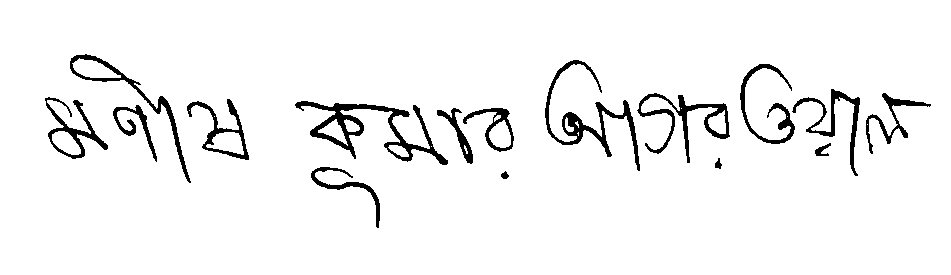 মণীষ কুমার আগরওয়াল